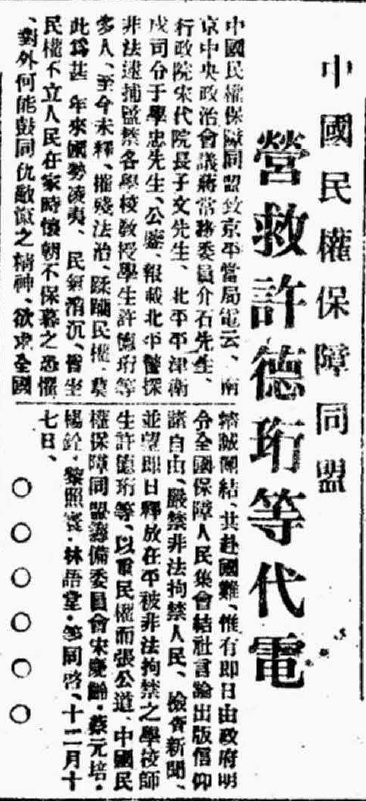 中國民權保障同盟
營救許德珩等代電
中國民權保障同盟致京平當局電云、南
京中央政治會議蔣常務委員介石先生、
行政院宋代院長子文先生、北平平津衛
戍司令于學忠先生、公鑒、報載北平警探
非法逮捕監禁各學校敎授學生許德珩等
多人、至今未釋、摧殘法治、蹂躪民權、莫
此爲甚、年來國勢凌夷、民氣消沉、皆坐
民權不立人民在家時懷朝不保暮之恐懼
、對外何能鼓同仇敵愾之精神、欲求全國
精誠團結、共赴國難、惟有即日由政府明
令全國保障人民集會結社言論出版信仰
諸自由、嚴禁非法拘禁人民、檢查新聞、
並望即日釋放在平被非法拘禁之學校師
生許德珩等、以重民權而張公道、中國民
權保障同盟籌備委員會宋慶齡·蔡元培·
楊銓·黎照寰·林語堂·等同啓、十二月十
七日、
○○○○○○